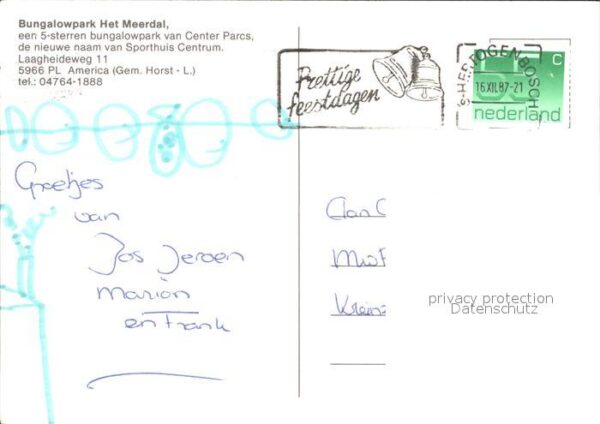 Bungalowpark Het Meerdal,
een 5-sterren bungalowpark van Center Parcs,
de nieuwe naam van Sporthuis Centrum.
Laagheideweg 11
5966 PL America (Gem. Horst - L.)
tel.: 04764-1888
Prettige
feestdagen
'S-HERTOGENBOSCH
16.XII.87-21
C
nederland
Groetjes
van
Jos Jeroen
Marion
en Frank
Aan
privacy protection
Datenschutz